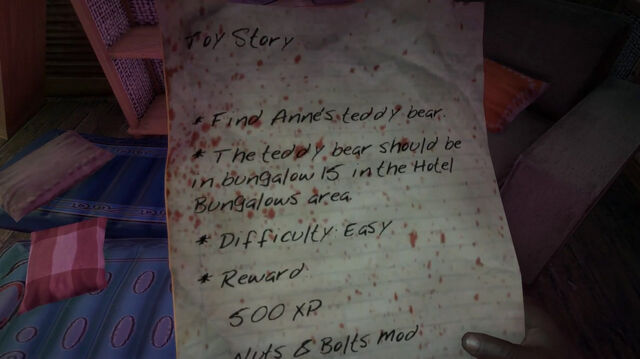 Toy Story
* Find Anne's teddy bear.
* The teddy bear should be
in bungalow 15 in the Hotel
Bungalows area.
* Difficulty: Easy
* Reward
500 XP
Nuts & Bolts Mod